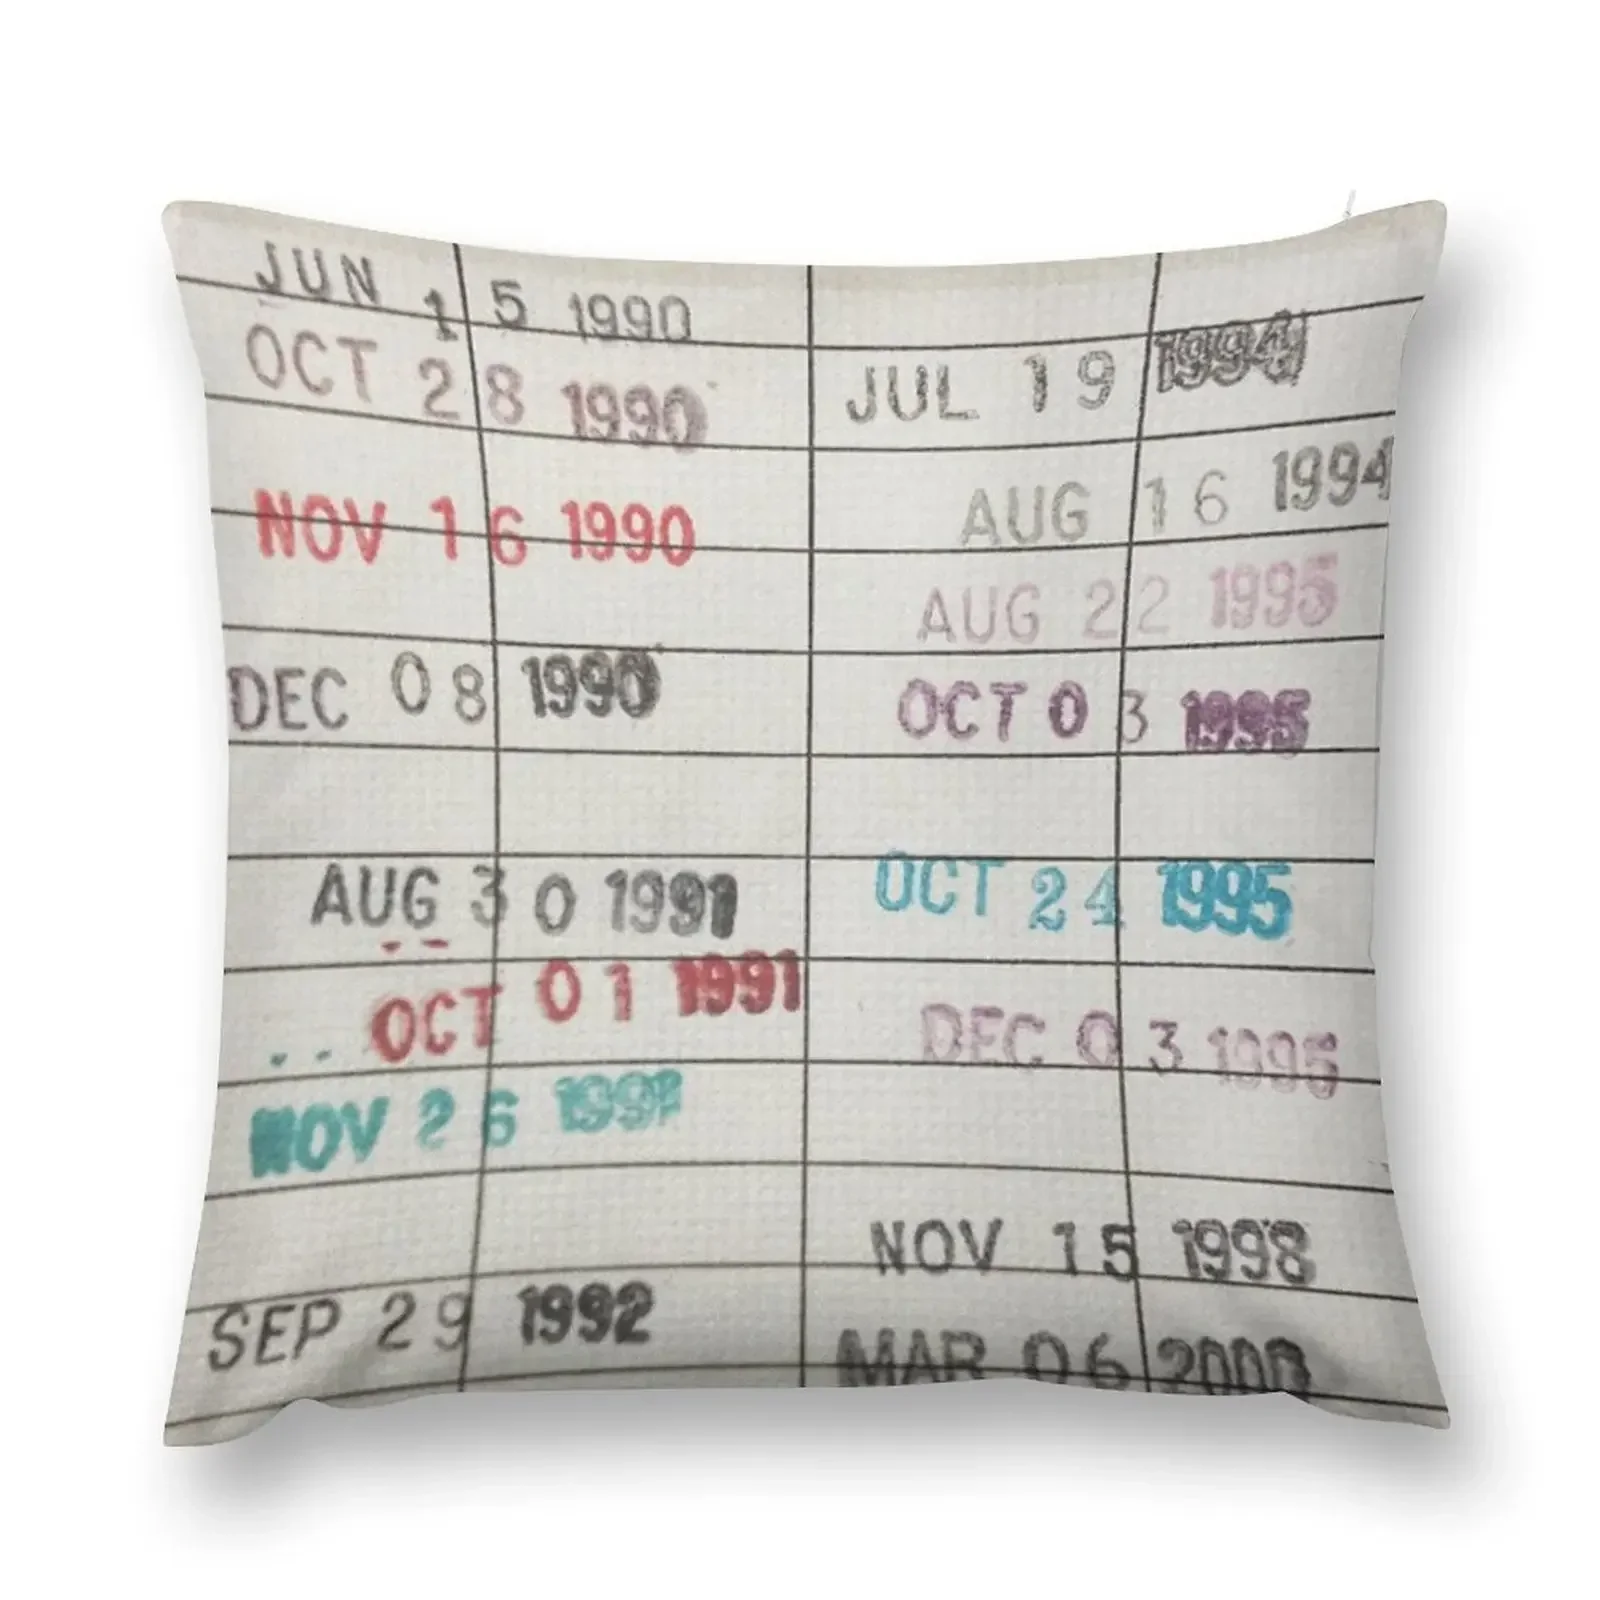 JUN 15 1990
OCT 28 1990
NOV 16 1990
DEC 08 1990
AUG 30 1991
OCT 01 1991
NOV 26 1991
SEP 29 1992
JUL 19 1994
AUG 16 1994
AUG 22 1995
OCT 03 1995
OCT 24 1995
DEC 03 1995
NOV 15 1998
MAR 06 2000